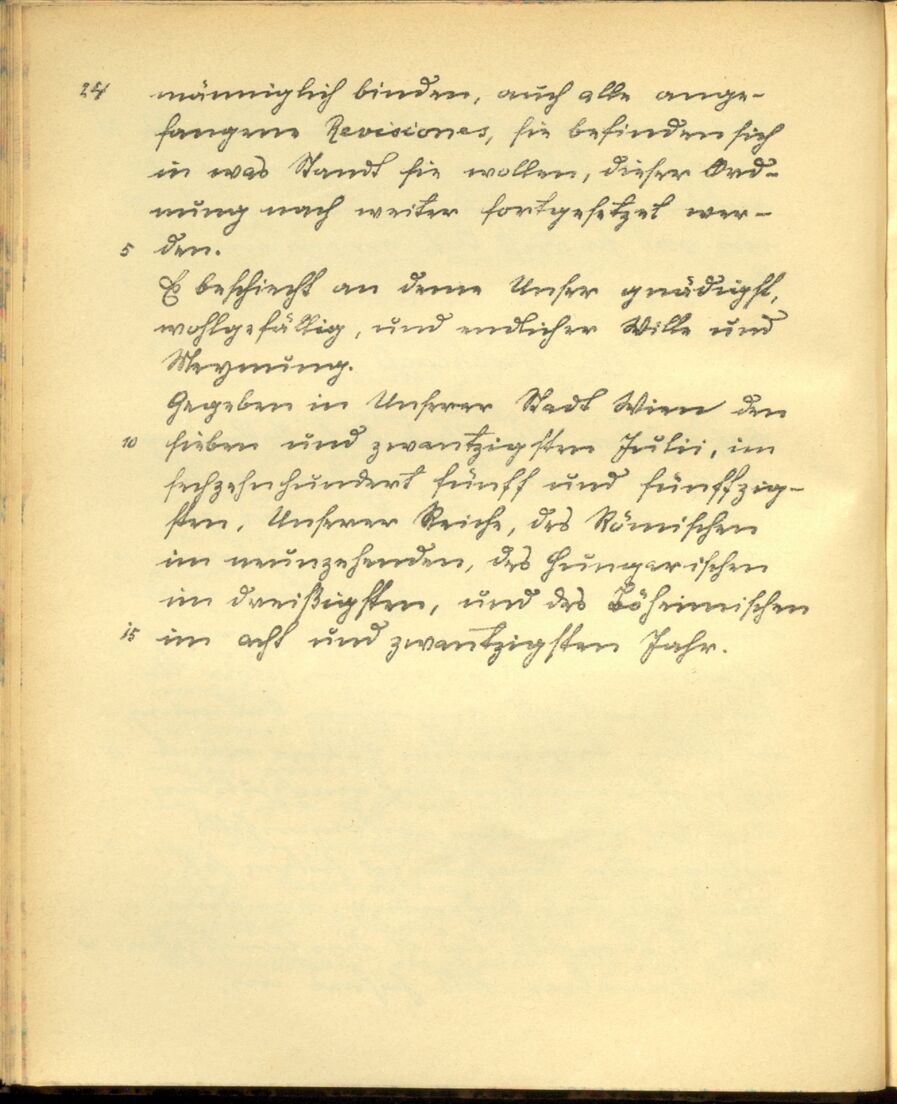 24 männiglich binden, auch alle ange-
fangene Revisiones, sie befinden sich
in was Standt sie wollen, dieser Ord-
nung nach weiter fortgesetzet wer-
5 den.
Es beschiecht an deme Unser gnädigst,
wohlgefällig, und endlicher Wille und
Meynung.
Gegeben in Unserer Stadt Wien den
10 sieben und zwantzigsten Julii, im
sechzehnhundert fünff und fünffzig-
sten, Unserer Reiche, des Römischen
im neunzehenden, des Hungarischen
im dreißigsten, und des Böheimischen
15 im acht und zwantzigsten Jahr.